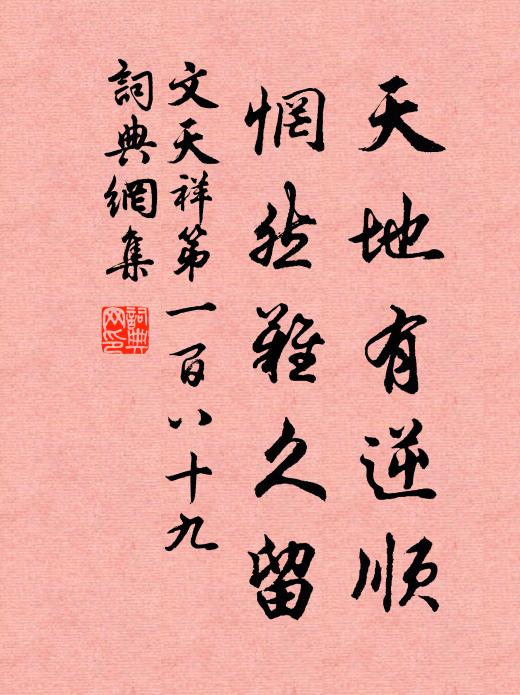 天地有逆順
惘然難久留
文天祥第一百八十九
詞典網集
詞典網印